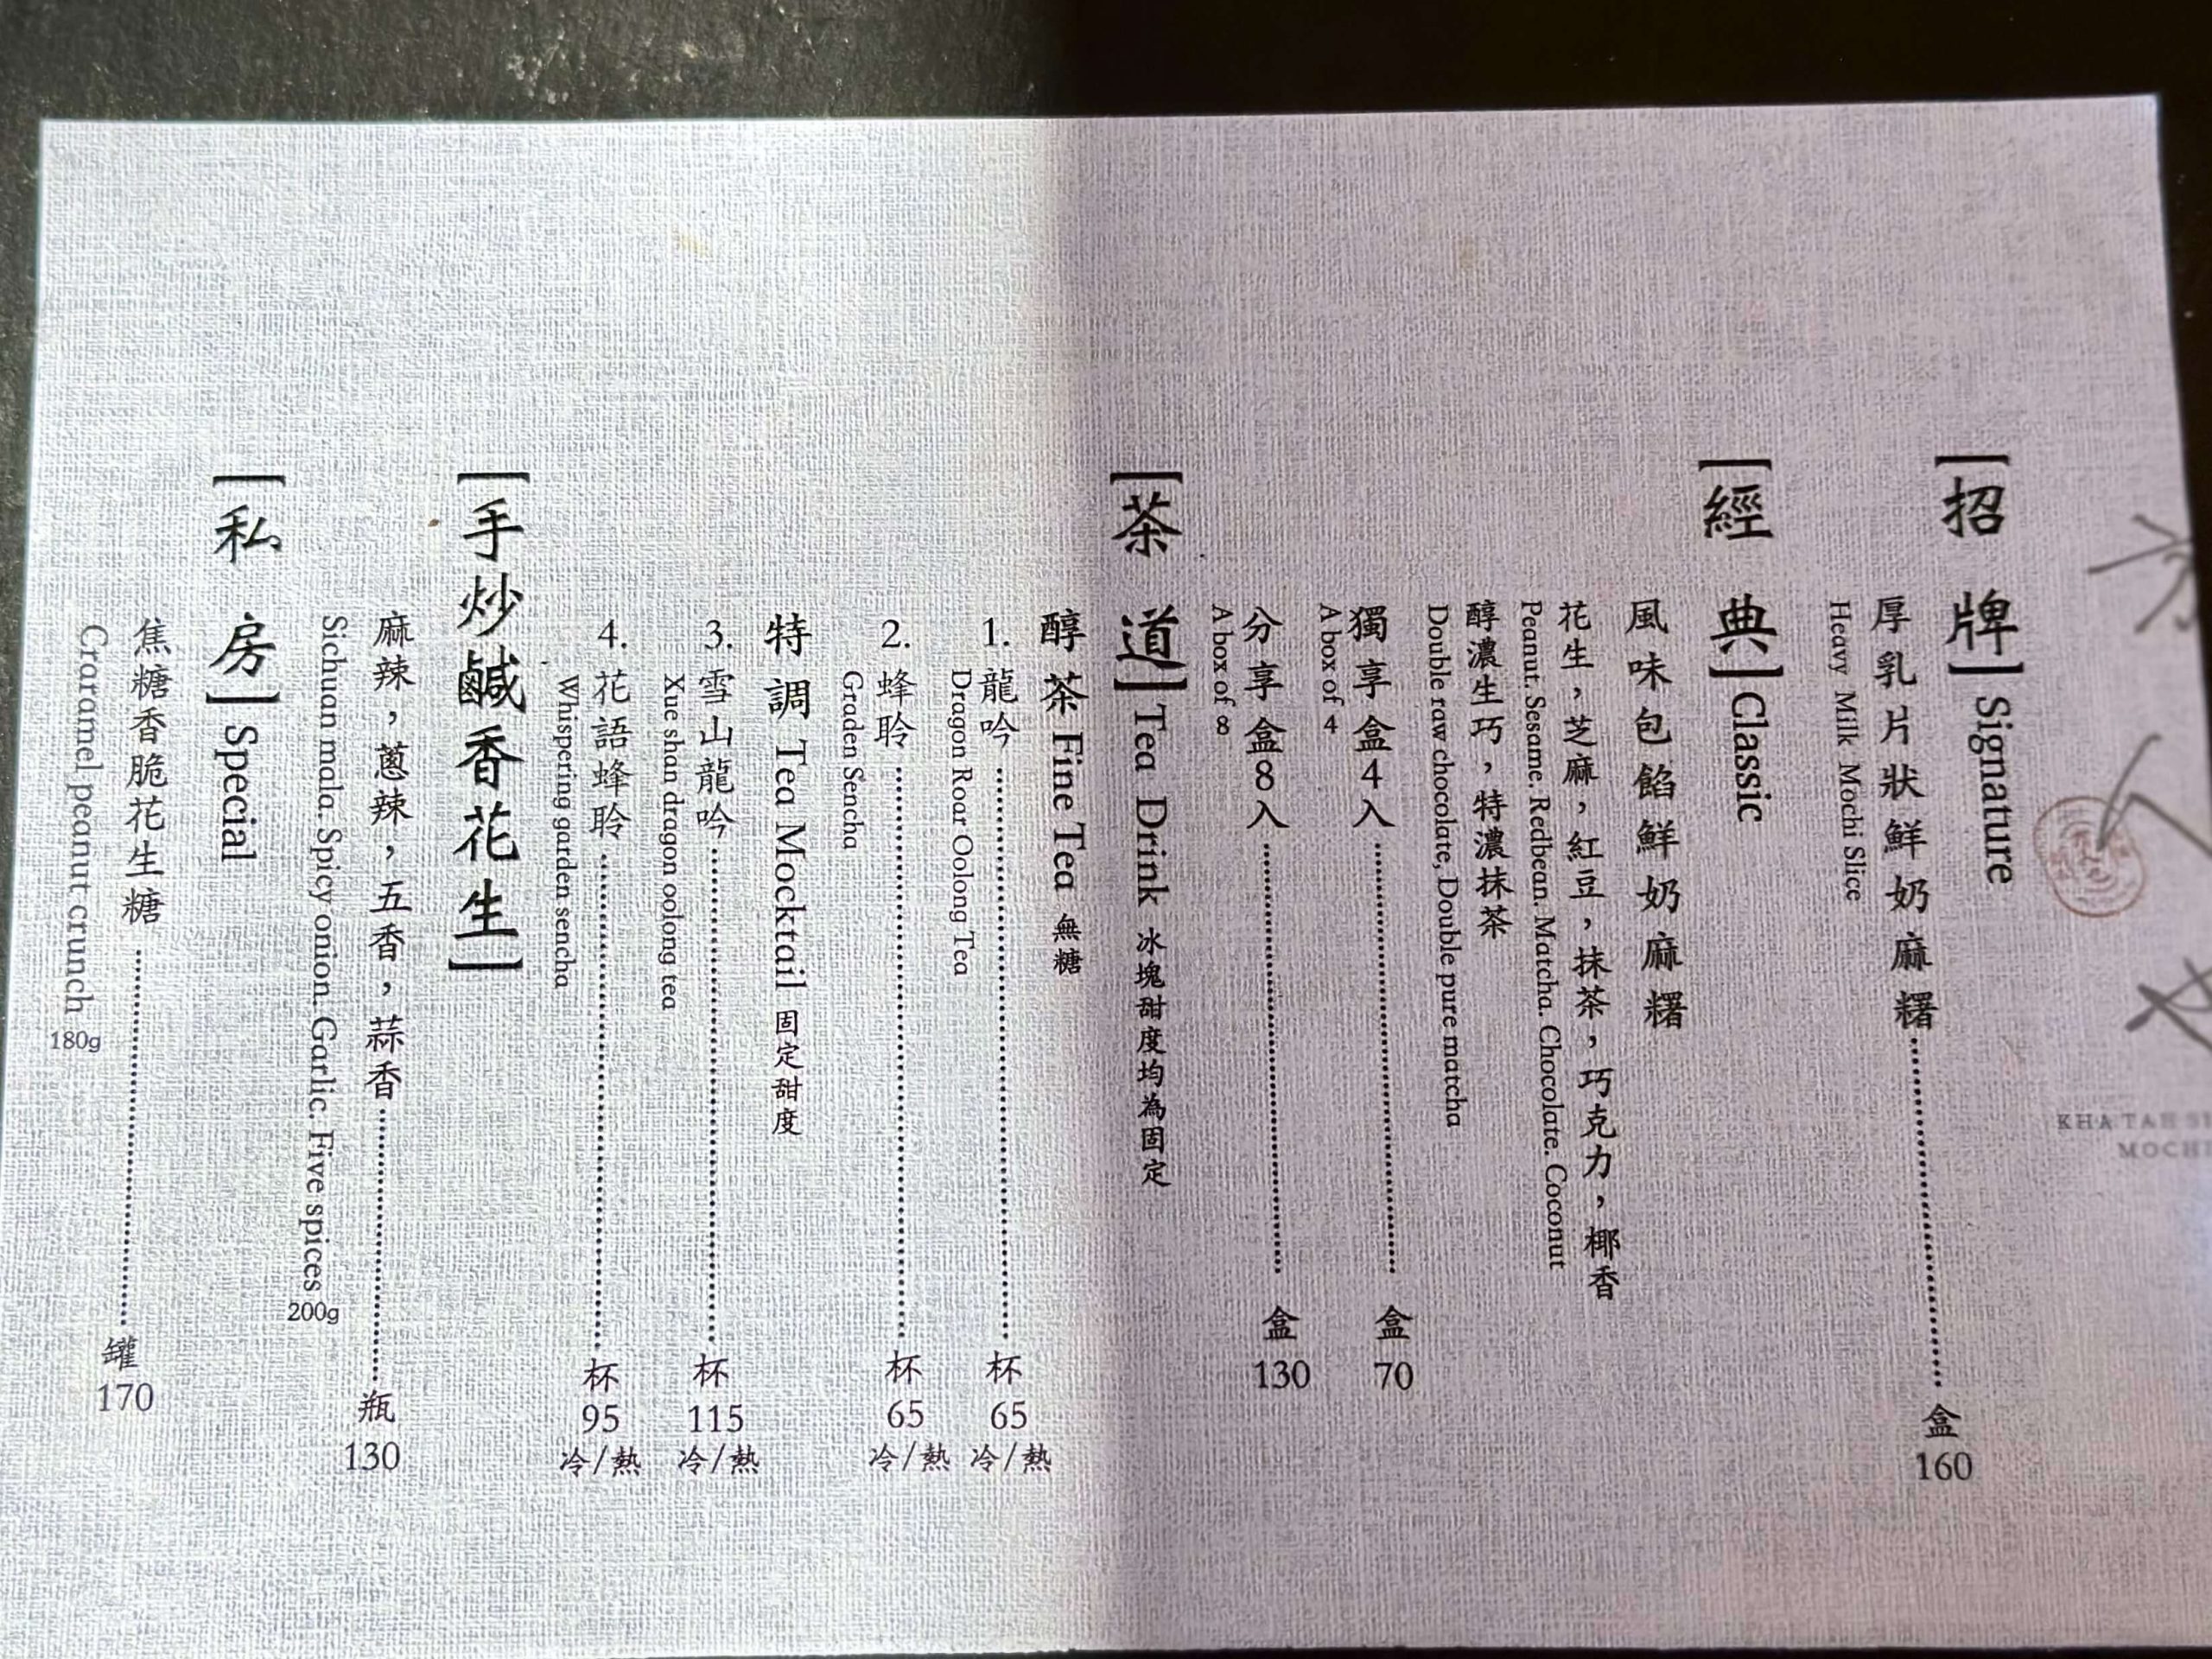 [招牌] Signature
厚乳片狀鮮奶麻糬 盒 160
Heavy Milk Mochi Slice
[經典] Classic
風味包餡鮮奶麻糬
花生，芝麻，紅豆，抹茶，巧克力，椰香
Peanut. Sesame. Redbean. Matcha. Chocolate. Coconut
醇濃生巧，特濃抹茶
Double raw chocolate, Double pure matcha
獨享盒4入 盒 70
A box of 4
分享盒8入 盒 130
A box of 8
[茶道] Tea Drink 冰塊甜度均為固定
醇茶 Fine Tea 無糖
1. 龍吟 杯 65 冷/熱
Dragon Roar Oolong Tea
2. 蜂聆 杯 65 冷/熱
Graden Sencha
特調 Tea Mocktail 固定甜度
3. 雪山龍吟 杯 115 冷/熱
Xue shan dragon oolong tea
4. 花語蜂聆 杯 95 冷/熱
Whispering garden sencha
[手炒鹹香花生]
麻辣，蔥辣，五香，蒜香 瓶 130
Sichuan mala. Spicy onion. Garlic. Five spices 200g
[私房] Special
焦糖香脆花生糖 罐 170
Craramel peanut crunch 180g
KHA TAH
MOCHI